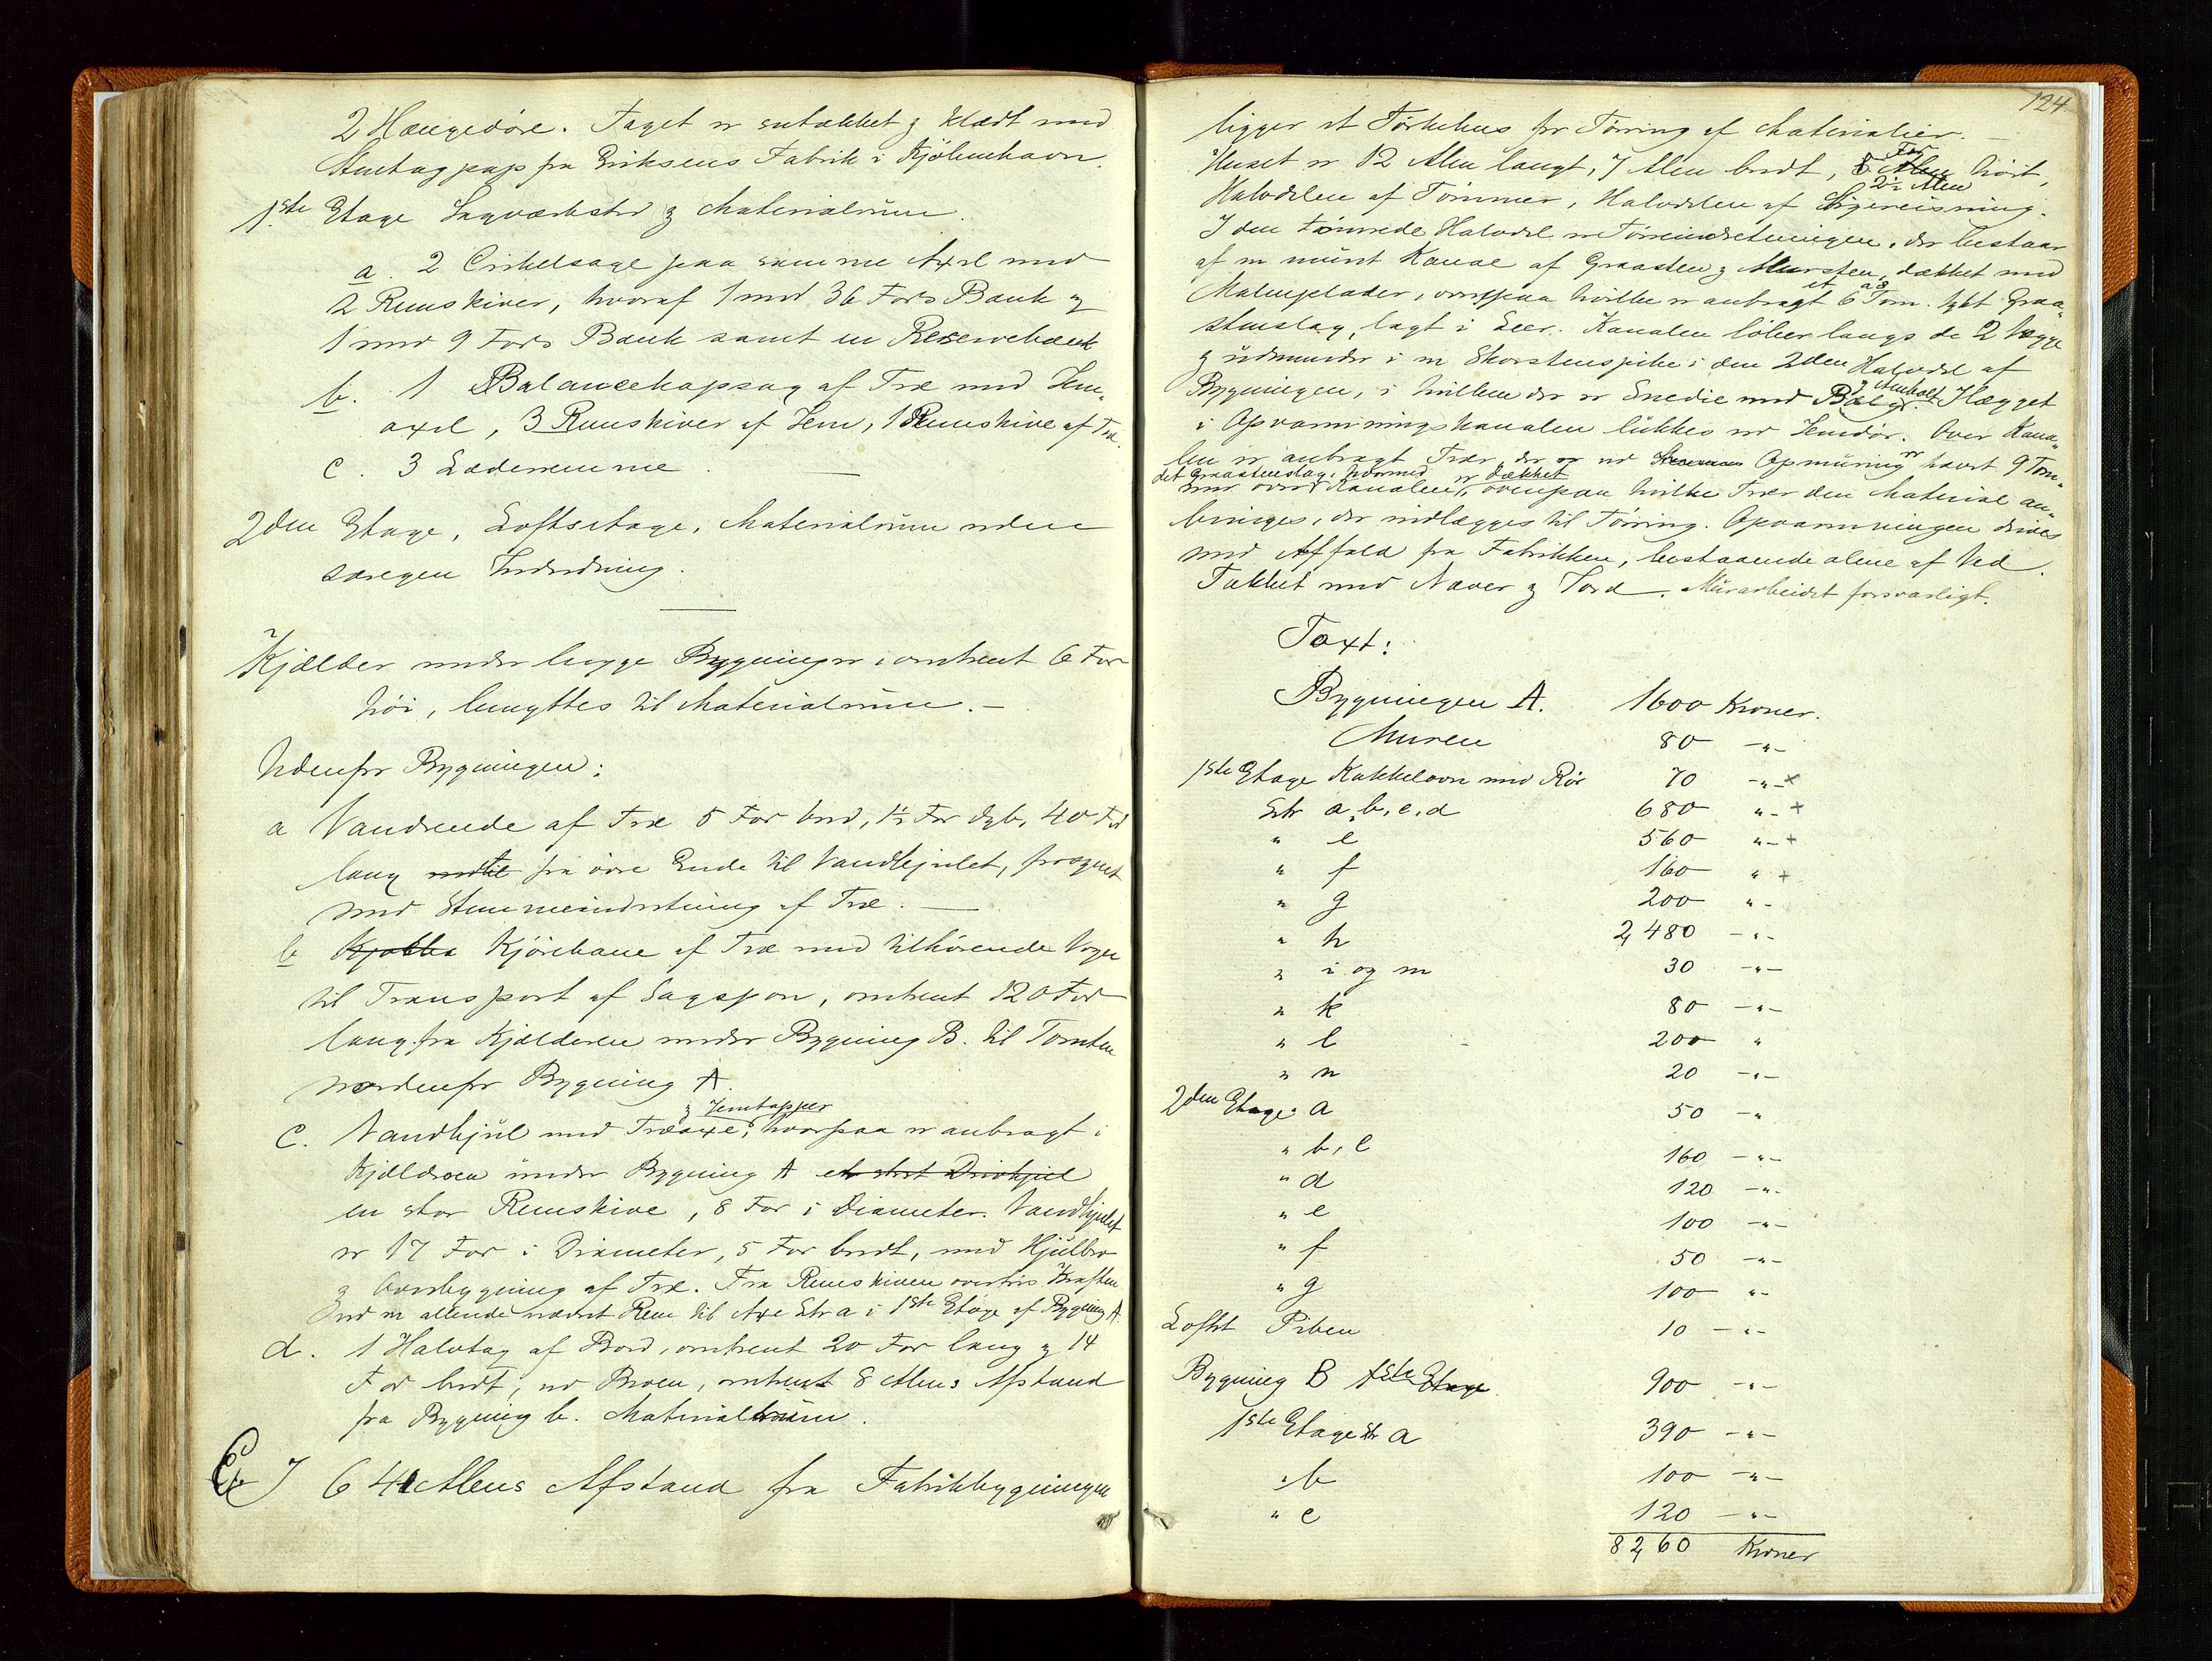 2 Hængedøre. Taget er entækket og klædt med
Stentagpap fra Eriksens Fabrik i Kjøbenhavn.
1ste Etage Sagværksted og Materialrum.
a. 2 Cirkelsage paa samme Axel med
2 Remskiver, hvoraf 1 med 36 Fods Bænk og
1 med 9 Fods Bænk samt en Reservebænk
b. 1 Balancekapsag af Træ med Jern-
axel, 3 Remskiver af Jern, 1 Remskive af Træ.
c. 3 Læderremme.
2den Etage, Loftsetage, Materialrum uden
særegen Indredning.
Kjælder under begge Bygninger, omtrent 6 Fod
høi, benyttes til Materialrum.-
Udenfor Bygningen:
a Vandrende af Træ 5 Fod bred, 1½ Fod dyb, 40 Fod
lang fra øvre Ende til Vandhjulet, forsynet
med Stemmeindretning af Træ.
b Kjørebane af Træ med tilhørende Vogn
til Transport af Sagspon, omtrent 120 Fod
lang, fra Kjælderen under Bygning B. til Tomten
nordenfor Bygning A.
og Jerntapper
c. Vandhjul med Træaxe, hvorpaa er anbragt i
Kjælderen under Bygning A et stort Drivhjul
en stor Remskive, 8 Fod i Diameter. Vandhjulet
er 17 Fod i Diameter, 5 Fod bredt, med Hjulbro
og Overbygning af Træ. Fra Remskiven overføres Kraften
ved en allerede nævnt Rem til Axe Litr a i 1ste Etage af Bygning A.
d. 1 Halvtag af Bord, omtrent 20 Fod lang og 14
Fod bredt, ved Broen, omtrent 8 Alens Afstand
fra Bygning b. Materialrum.
C I 64 Alens Afstand fra Fabrikbygningen
124
ligger et Tørkehus for Tørring af Materialier.
Huset er 12 Alen langt, 7 Alen bredt, 5 Fod høit,
2½ Alen
Halvdelen af Tømmer, Halvdelen af Bigereisning.
I den tømrede Halvdel er Tørreindretningen, der bestaar
af en muret Kanal af Graasten og Mursten, dækket med
Malmplader, ovenpaa hvilke er anbragt et 6 a 8 Tom. tykt Graa-
stenslag, lagt i Leer. Kanalen løber langs de 2 Vægge
og udmunder i en Skorstenspibe i den 2den Halvdel af
Bygningen, i hvilken der er Smedie med Bælg og Ambolt. Hægget
i Opvarmningskanalen lukkes ved Jerndør. Over Kana-
len er anbragt Træer, der ved Opmuring er hævet 9 Tom-
det Graastenslag, hvormed er dækket
mer over Kanalen, ovenpaa hvilke Træer den Material an-
bringes, der indlægges til Tørring. Opvarmningen drives
med Affald fra Fabrikken, bestaaende alene af Ved.
Tækket med Næver og Tord. Murarbeidet forsvarligt.
Taxt:
Bygningen A. 1600 Kroner.
Muren 80 -"-
1ste Etage Kakkelovn med Rør 70 -"- ×
Litr a, b, c, d 680 "- +
" e 560 "- +
" f 160 " +
" g 200 "-
" h 2,480 -"-
" i og m 30 -"-
" k 80 -"-
" l 200 "
" n 20 -"-
2den Etage: a 50 -"
" b, c 160 -"-
" d 120 -"-
" e 100 -"-
" f 50 -"-
" g 100 "-
Loftet Piben 10 -"-
Bygning B 1ste Etage 900 -"-
1ste Etage Litr a 390 -"-
" b 100 -"-
" c 120 -"-
8,260 Kroner